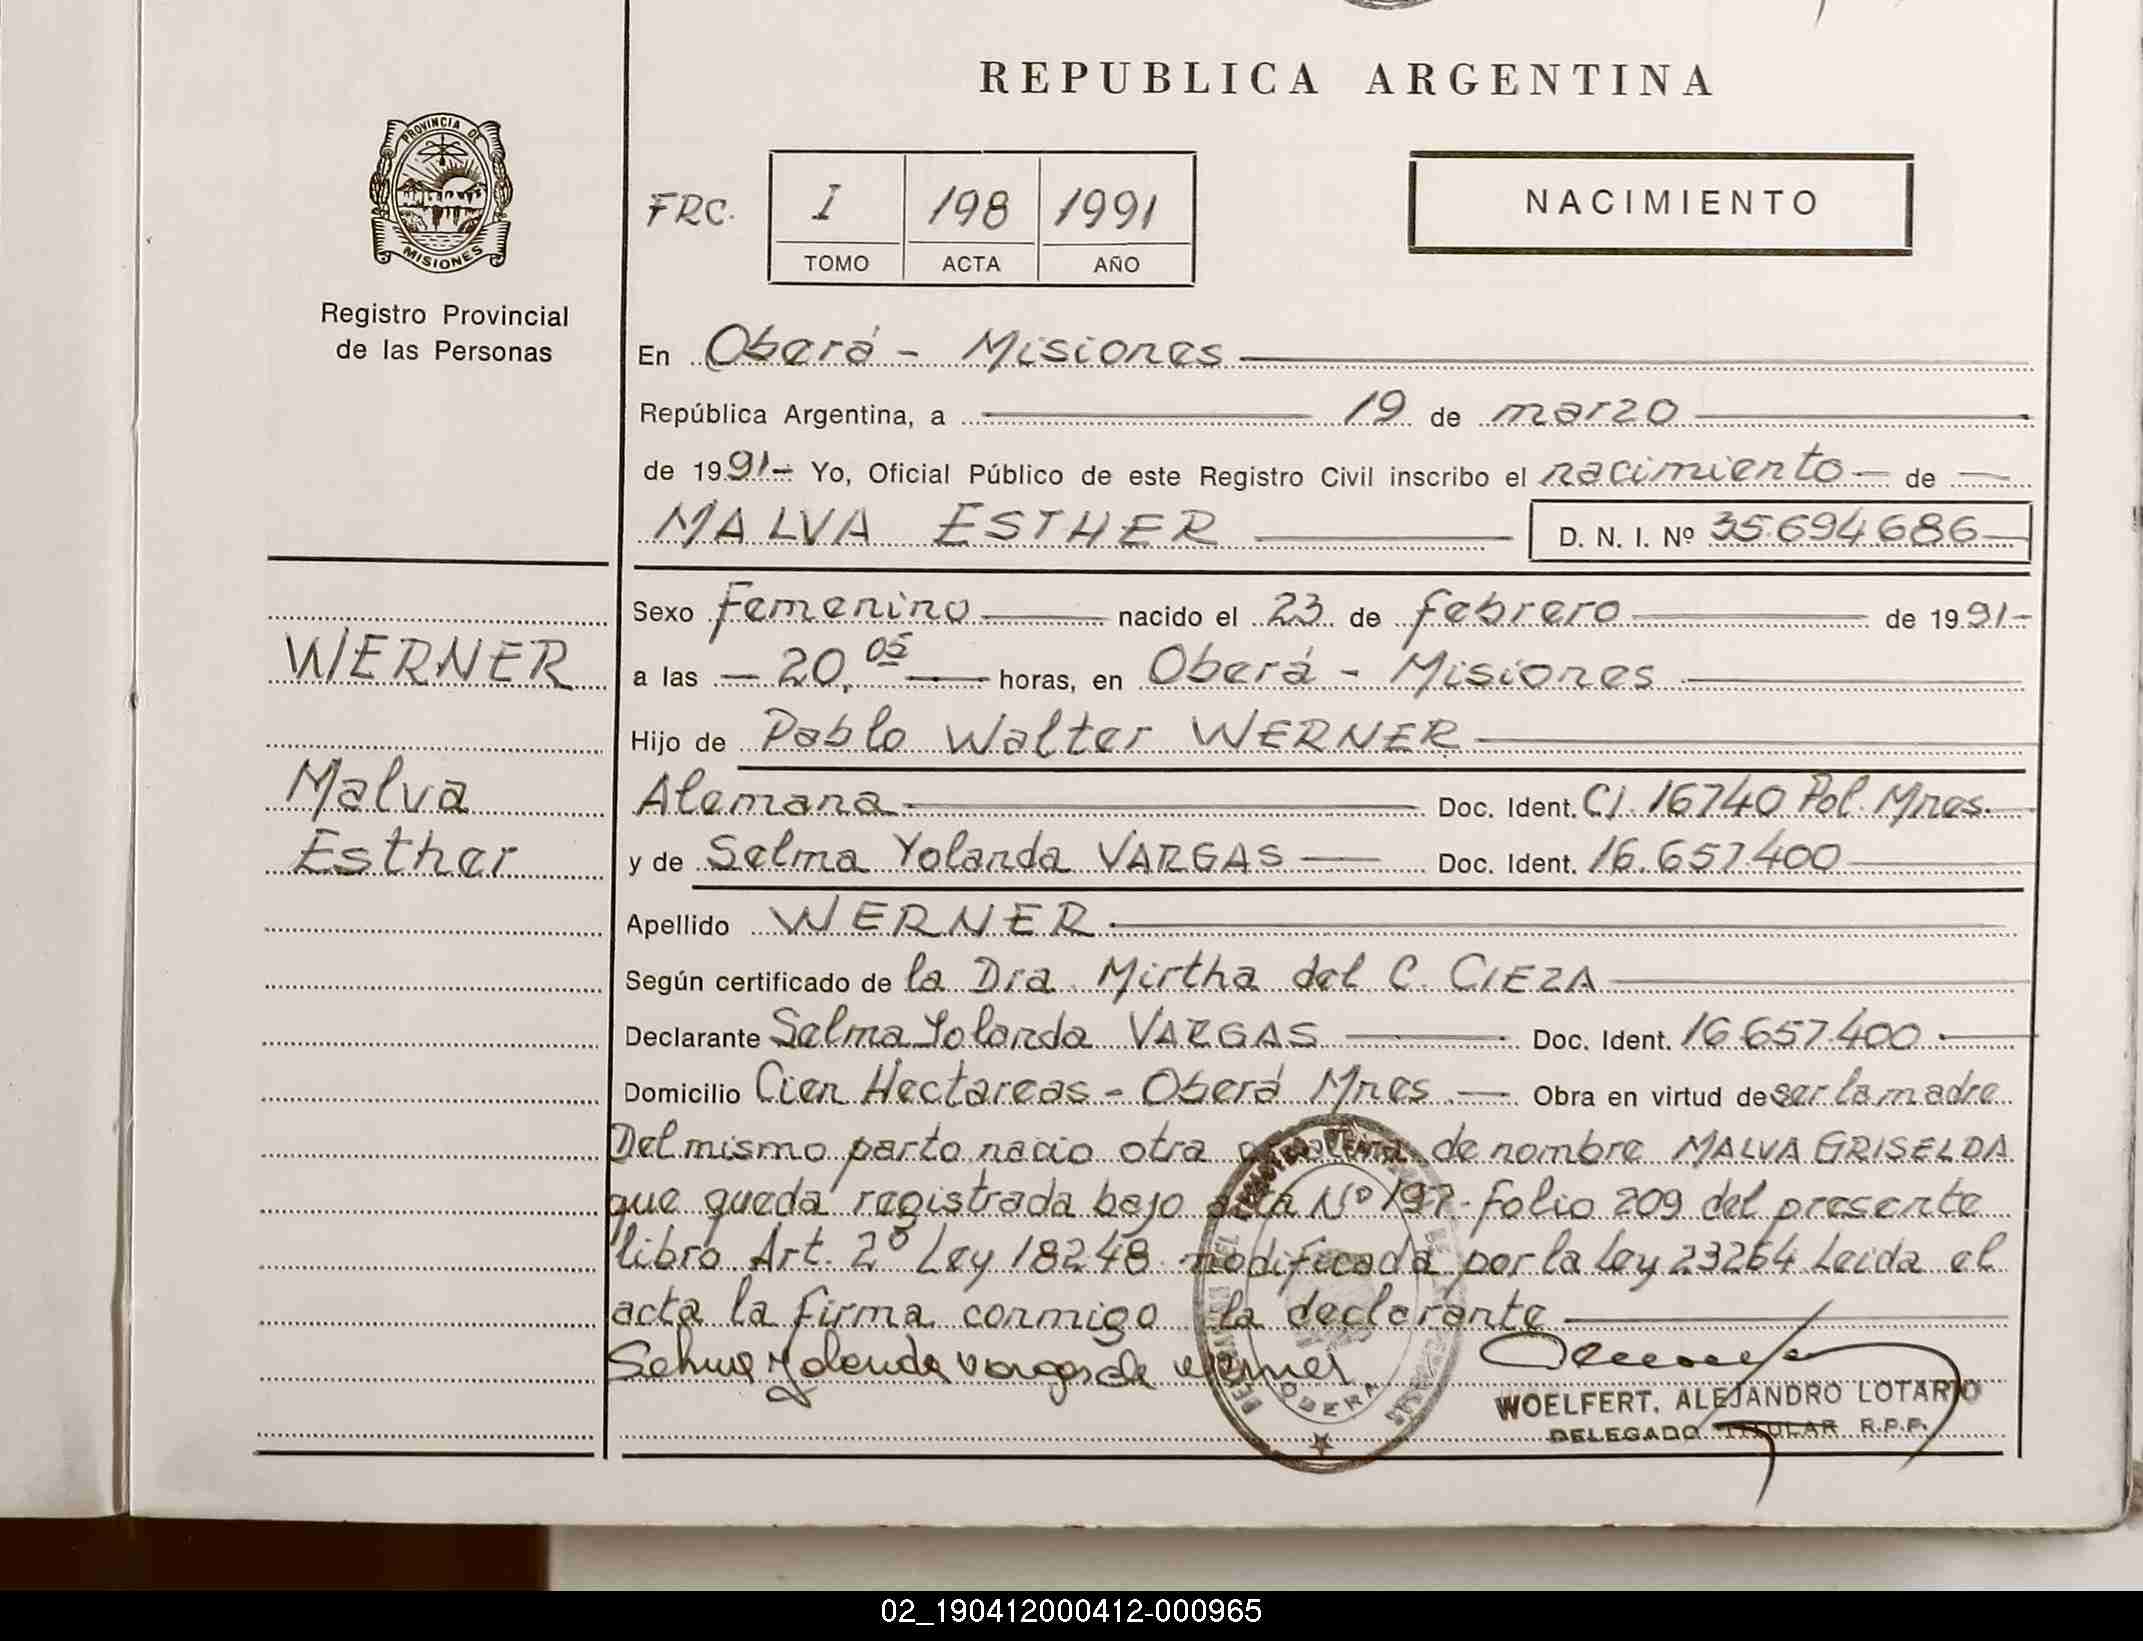 REPUBLICA ARGENTINA
PROVINCIA DE
MISIONES
Registro Provincial
de las Personas
FRC. I 198 1991
TOMO ACTA AÑO
NACIMIENTO
En Oberá - Misiones
República Argentina, a 19 de marzo
de 1991- Yo, Oficial Público de este Registro Civil inscribo el nacimiento de
MALVA ESTHER D. N. I. Nº 35.694.686
Sexo Femenino nacido el 23 de febrero de 1991-
WERNER
a las 20,05 horas, en Oberá - Misiones
Hijo de Pablo Walter WERNER
Malva
Alemana Doc. Ident. CI. 16740 Pol. Mnes.
Esther
y de Selma Yolanda VARGAS Doc. Ident. 16.657.400
Apellido WERNER
Según certificado de la Dra. Mirtha del C. CIEZA
Declarante Selma Yolanda VARGAS Doc. Ident. 16.657.400
Domicilio Cien Hectareas - Oberá Mnes Obra en virtud de ser la madre
Del mismo parto nacio otra de nombre MALVA GRISELDA
que queda registrada bajo acta Nº 197- folio 209 del presente
libro Art. 2º Ley 18248 modificada por la Ley 23264 Leida el
acta la firma conmigo la declarante
Selma Yolanda Vargas de Werner
OBERA
WOELFERT, ALEJANDRO LOTARIO
DELEGADO TITULAR R.P.P.
02_190412000412-000965